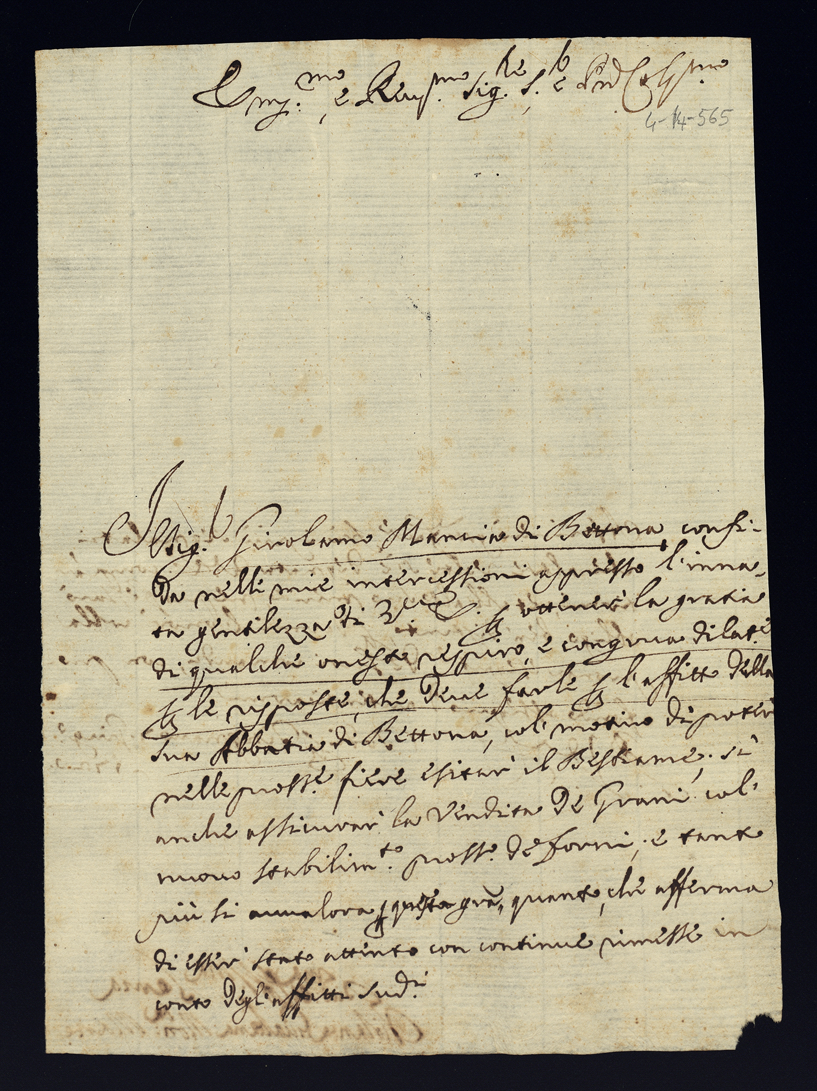 Em.mo e Rev.mo Sig.re S.e e P'rõ Col.mo
4-14-565
Il Sig.r Girolamo Mancia di Bettona confi-
da nelle mie intercessioni appresso l'inna-
ta gentilezza di V. E. p ottenere la gratia
di qualche onesto respiro, e congrua dilate
p le risposte, che deve farle p l'affitto della
sua Abbatia di Bettona, col motivo di poter
nelle pross.e fiere esitar il Bestiame, sì
anche assicurar la vendita de Grani col
nuovo stabilim.to pross.o de forni; e tanto
più si avvalora p questa gra, quanto, che afferma
di esser stato attento con continue rimesse in
conto degl'affitti sud.i